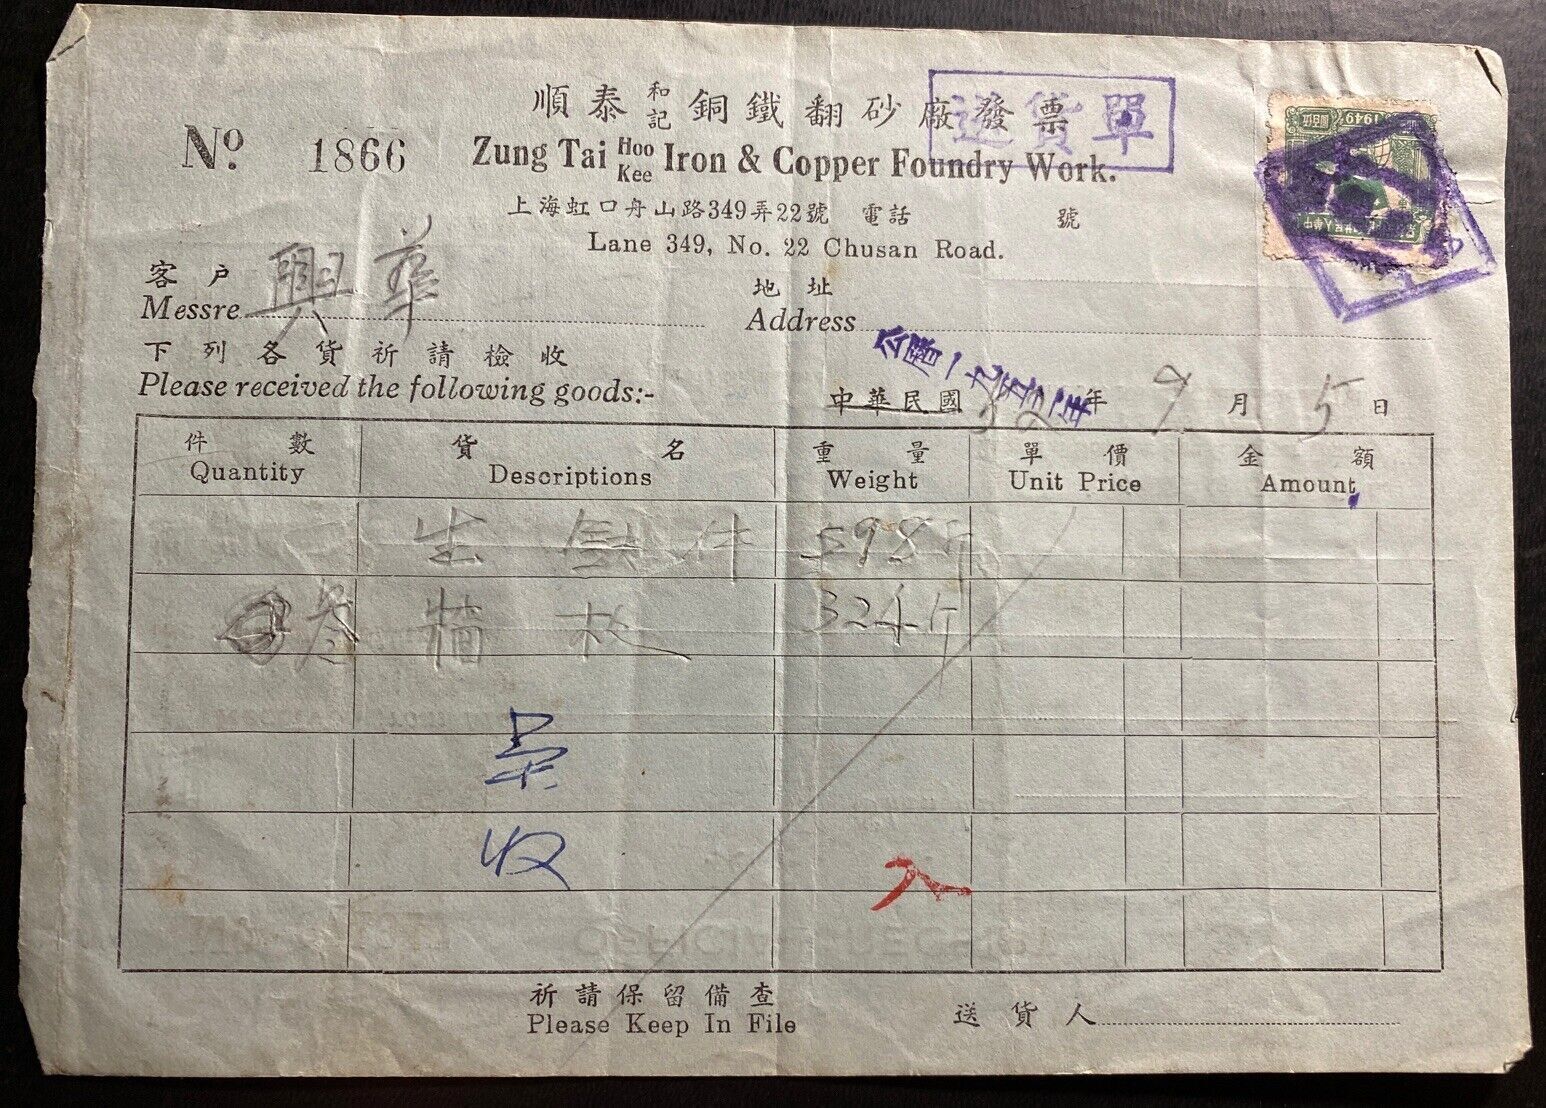 順泰和記銅鐵翻砂廠發票
送貨單
Nº 1866
Zung Tai Hoo Kee Iron & Copper Foundry Work.
1949
上海虹口舟山路349弄22號 電話 號
Lane 349, No. 22 Chusan Road.
客户 興華 地址
Messre Address
下列各貨祈請檢收
Please received the following goods:-
公曆一九五二年
中華民國 52 年 9 月 5 日
件數 貨名 重量 單價 金額
Quantity Descriptions Weight Unit Price Amount
生鉄件 598斤
叁 324斤
收
入
祈請保留備查
Please Keep In File 送貨人